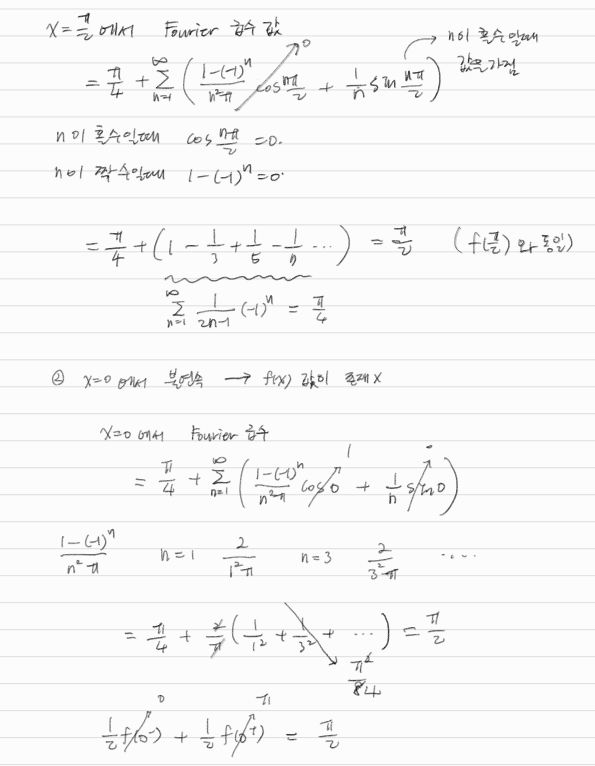 x = π/2 에서 Fourier 급수 값
= π/4 + Σ_{n=1}^{∞} ( (1-(-1)^n)/(n²π) cos nπ/2 + 1/n sin nπ/2 ) → 0 → n이 홀수일때 값을 가짐
n이 홀수일때 cos nπ/2 = 0.
n이 짝수일때 1-(-1)^n = 0.
= π/4 + ( 1 - 1/3 + 1/5 - 1/7 ... ) = π/2 ( f(π/2) 와 동일)
Σ_{n=1}^{∞} 1/(2n-1) (-1)^n = π/4
② x=0 에서 불연속 → f(x) 값이 존재 X
x=0 에서 Fourier 급수
= π/4 + Σ_{n=1}^{∞} ( (1-(-1)^n)/(n²π) cos 0 → 1 + 1/n sin 0 → 0 )
(1-(-1)^n)/(n²π) n=1 2/(1²π) n=3 2/(3²π) ....
= π/4 + 2/π ( 1/1² + 1/3² + ... ) = π/2
π²/84
1/2 f(0⁻) → 0 + 1/2 f(0⁺) → π = π/2